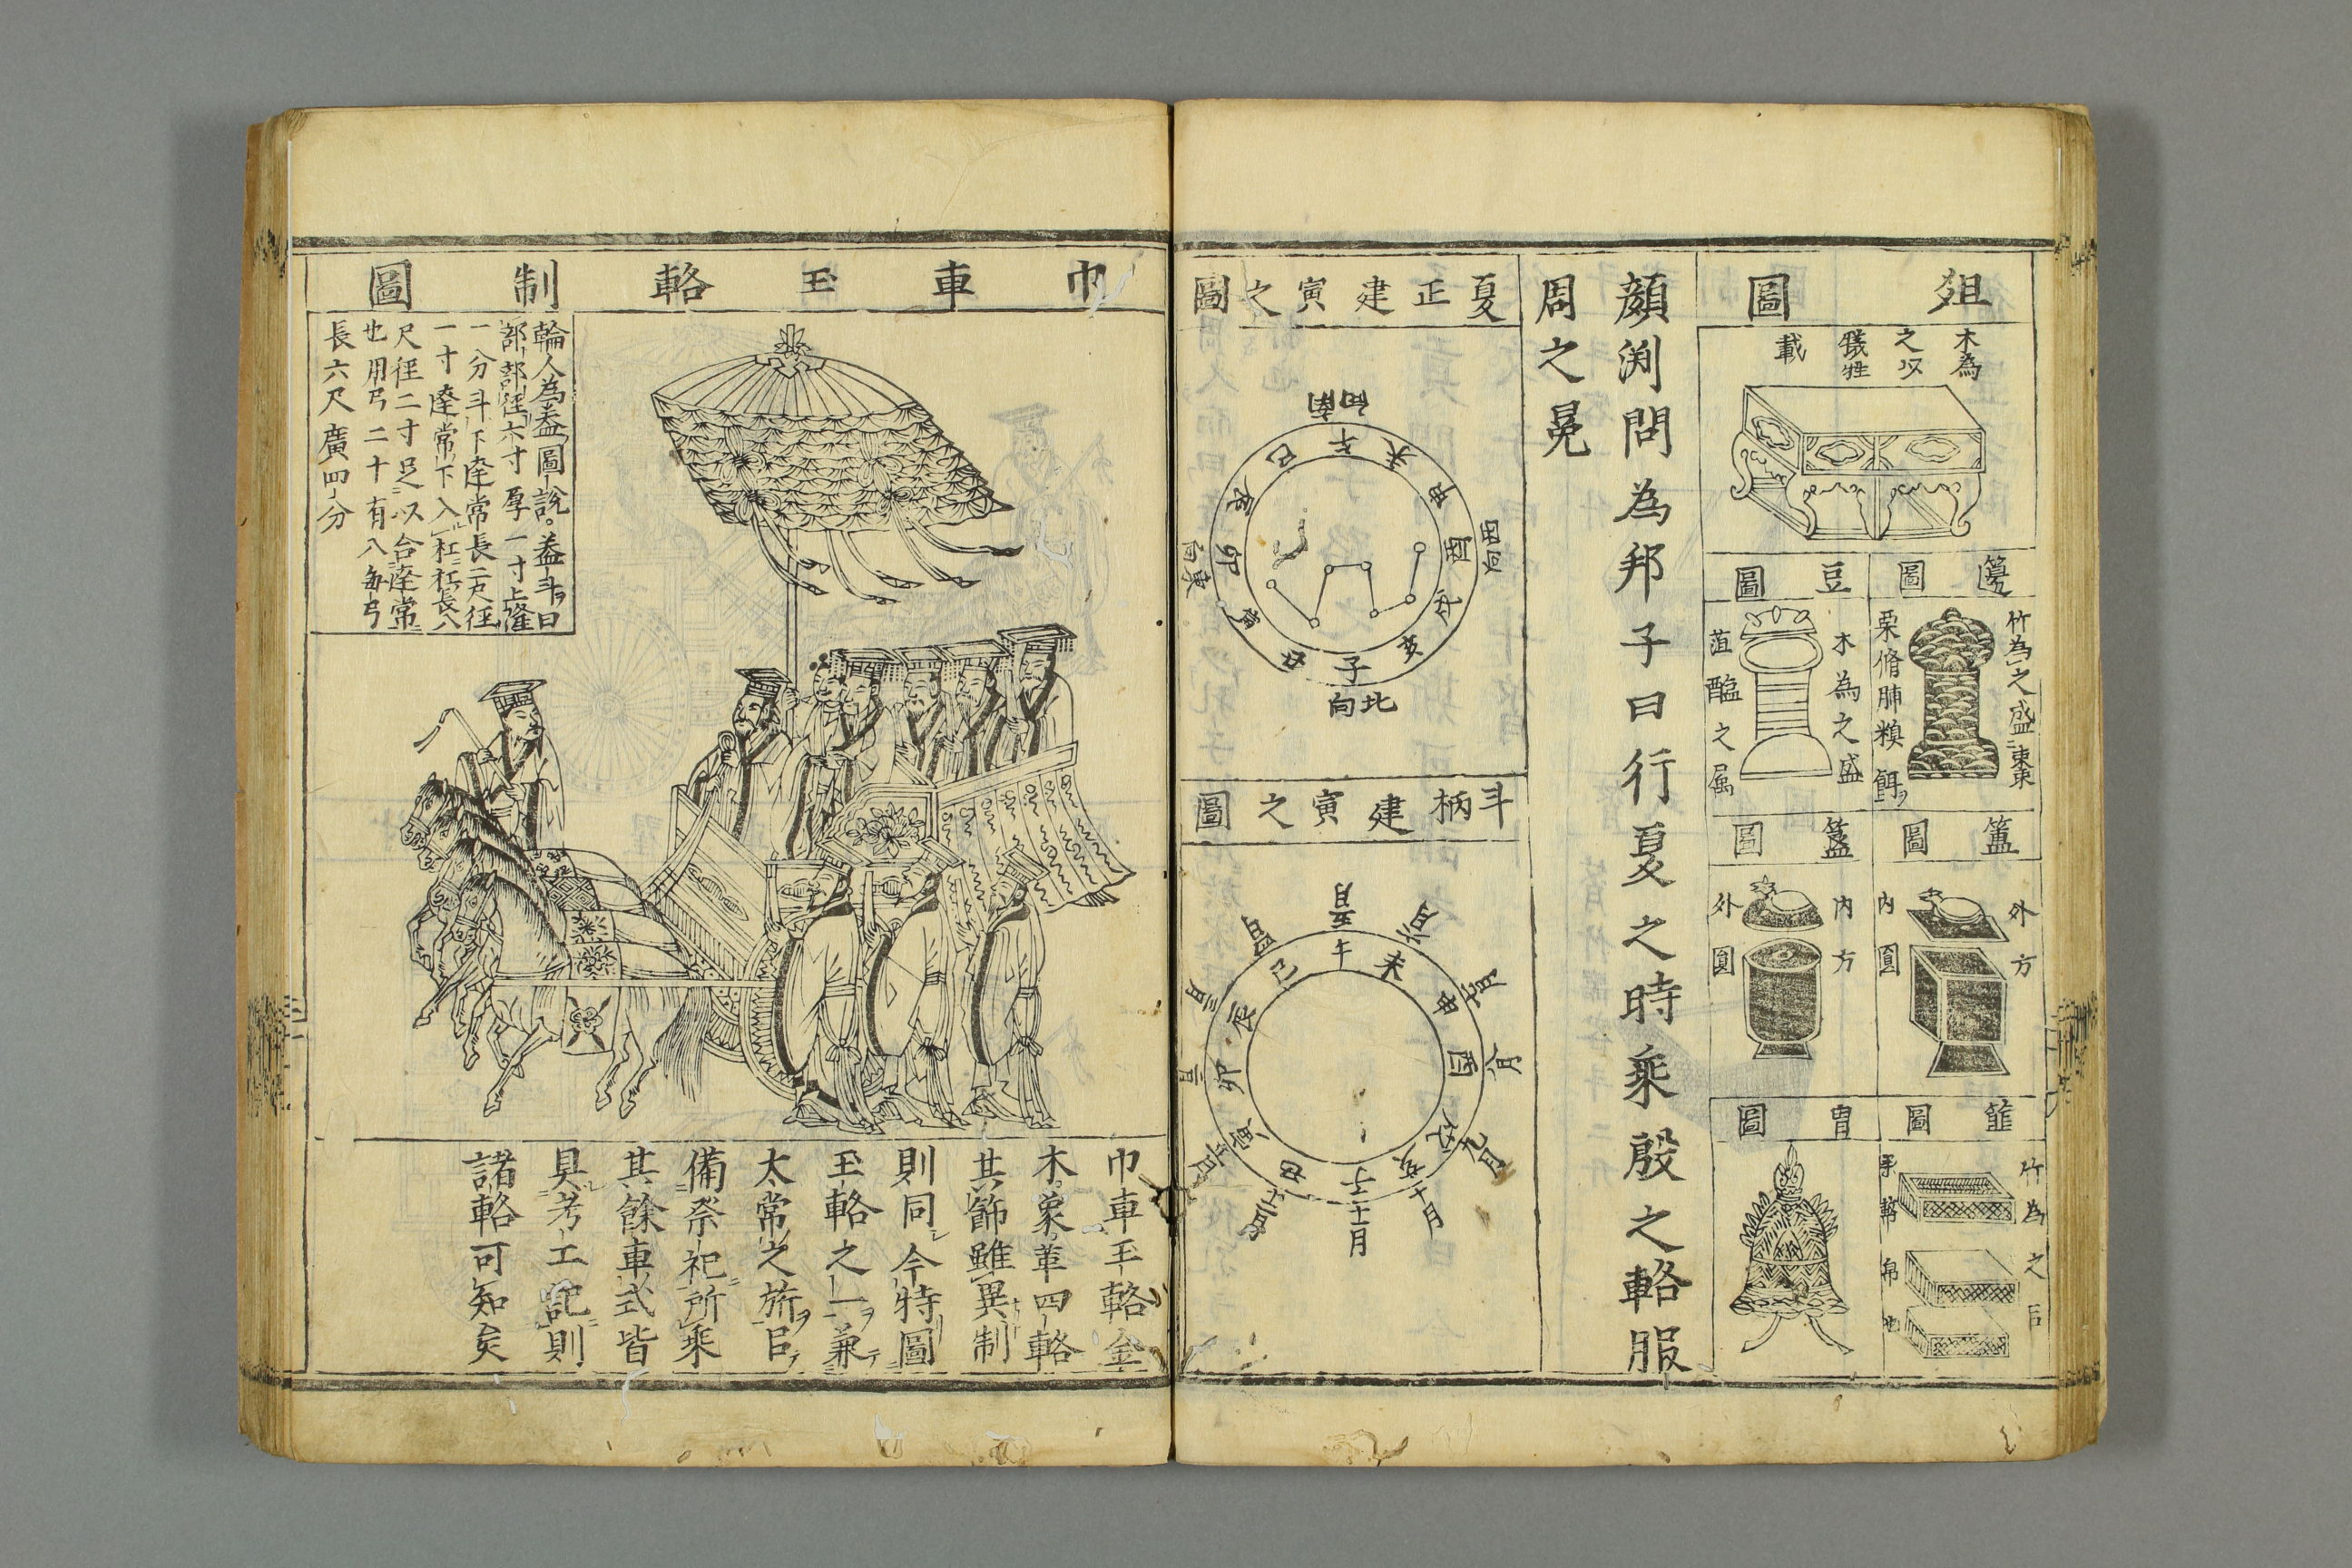 俎圖
木為
之以
載
犧牲
籩圖
竹為之盛棗
栗脩脯糗餌
豆圖
木為之盛
菹醢之属
簠圖
外方
内圓
簋圖
内方
外圓
圖
竹為之
圖
顔渕問為邦子曰行夏之時乘殷之輅服
周之冕
夏正建寅之圖
向南
午
未
申
酉
戌
亥
子
丑
寅
卯
辰
巳
向西
向北
向東
斗柄建寅之圖
午
未
申
酉
戌
亥
子
丑
寅
卯
辰
巳
五月
六月
七月
八月
九月
十月
十一月
十二月
正月
二月
三月
四月
巾車玉輅制圖
輪人為盖圖說。盖斗曰
部部徑六寸厚一寸上隆
一分斗下達常長二尺徑
一寸達常下入杠杠長八
尺徑二寸足以含達常
也用弓二十有八每弓
長六尺廣四分
巾車玉輅金
木象革四輅
其飾雖異制
則同今特圖
玉輅之一兼
太常之旂㠯
備祭祀所乘
其餘車式皆
具考工記則
諸輅可知矣